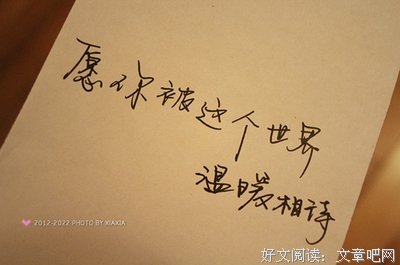 愿你被这个世界
温暖相待
2012-2022 PHOTO BY XIAXIA
好文阅读：文章吧网